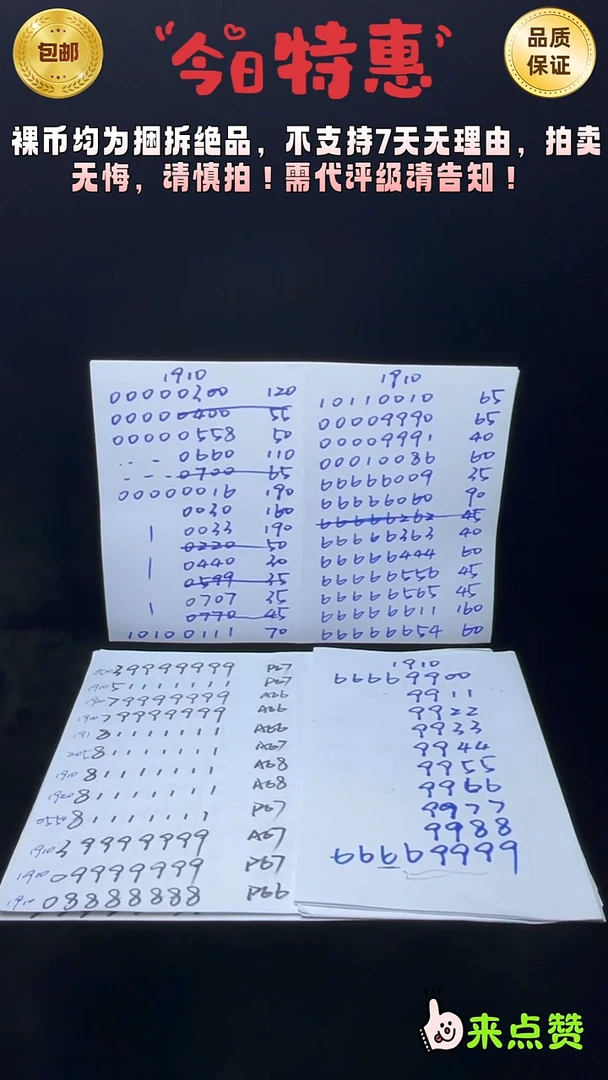 包邮
今日特惠
品质
保证
裸币均为捆拆绝品，不支持7天无理由，拍卖
无悔，请慎拍！需代评级请告知！
1910
00000300 120
00000400 55
00000558 50
0660 110
0700 65
00000016 190
0030 160
0033 190
0220 50
0440 30
0599 35
0707 35
0770 45
10100111 70
1910
10110010 65
00009990 65
00009991 40
00010086 60
66666009 35
66666060 90
66666262 45
66666363 40
66666444 60
66666556 45
66666565 45
66666611 160
66666654 60
39999999 P67
1910 51111111 P67
79999999 A66
79999999 A66
81111111 A66
2058 1111111 A67
1910 81111111 A68
1920 81111111 A68
0550 81111111 P67
1910 39999999 A67
1910 09999999 P67
1910 08888888 P66
1910
66669900
9911
9922
9933
9944
9955
9966
9977
9988
66669999
来点赞